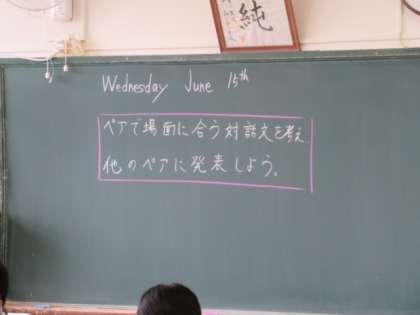 純
Wednesday June 15th
ペアで場面に合う対話文を考え
他のペアに発表しよう。